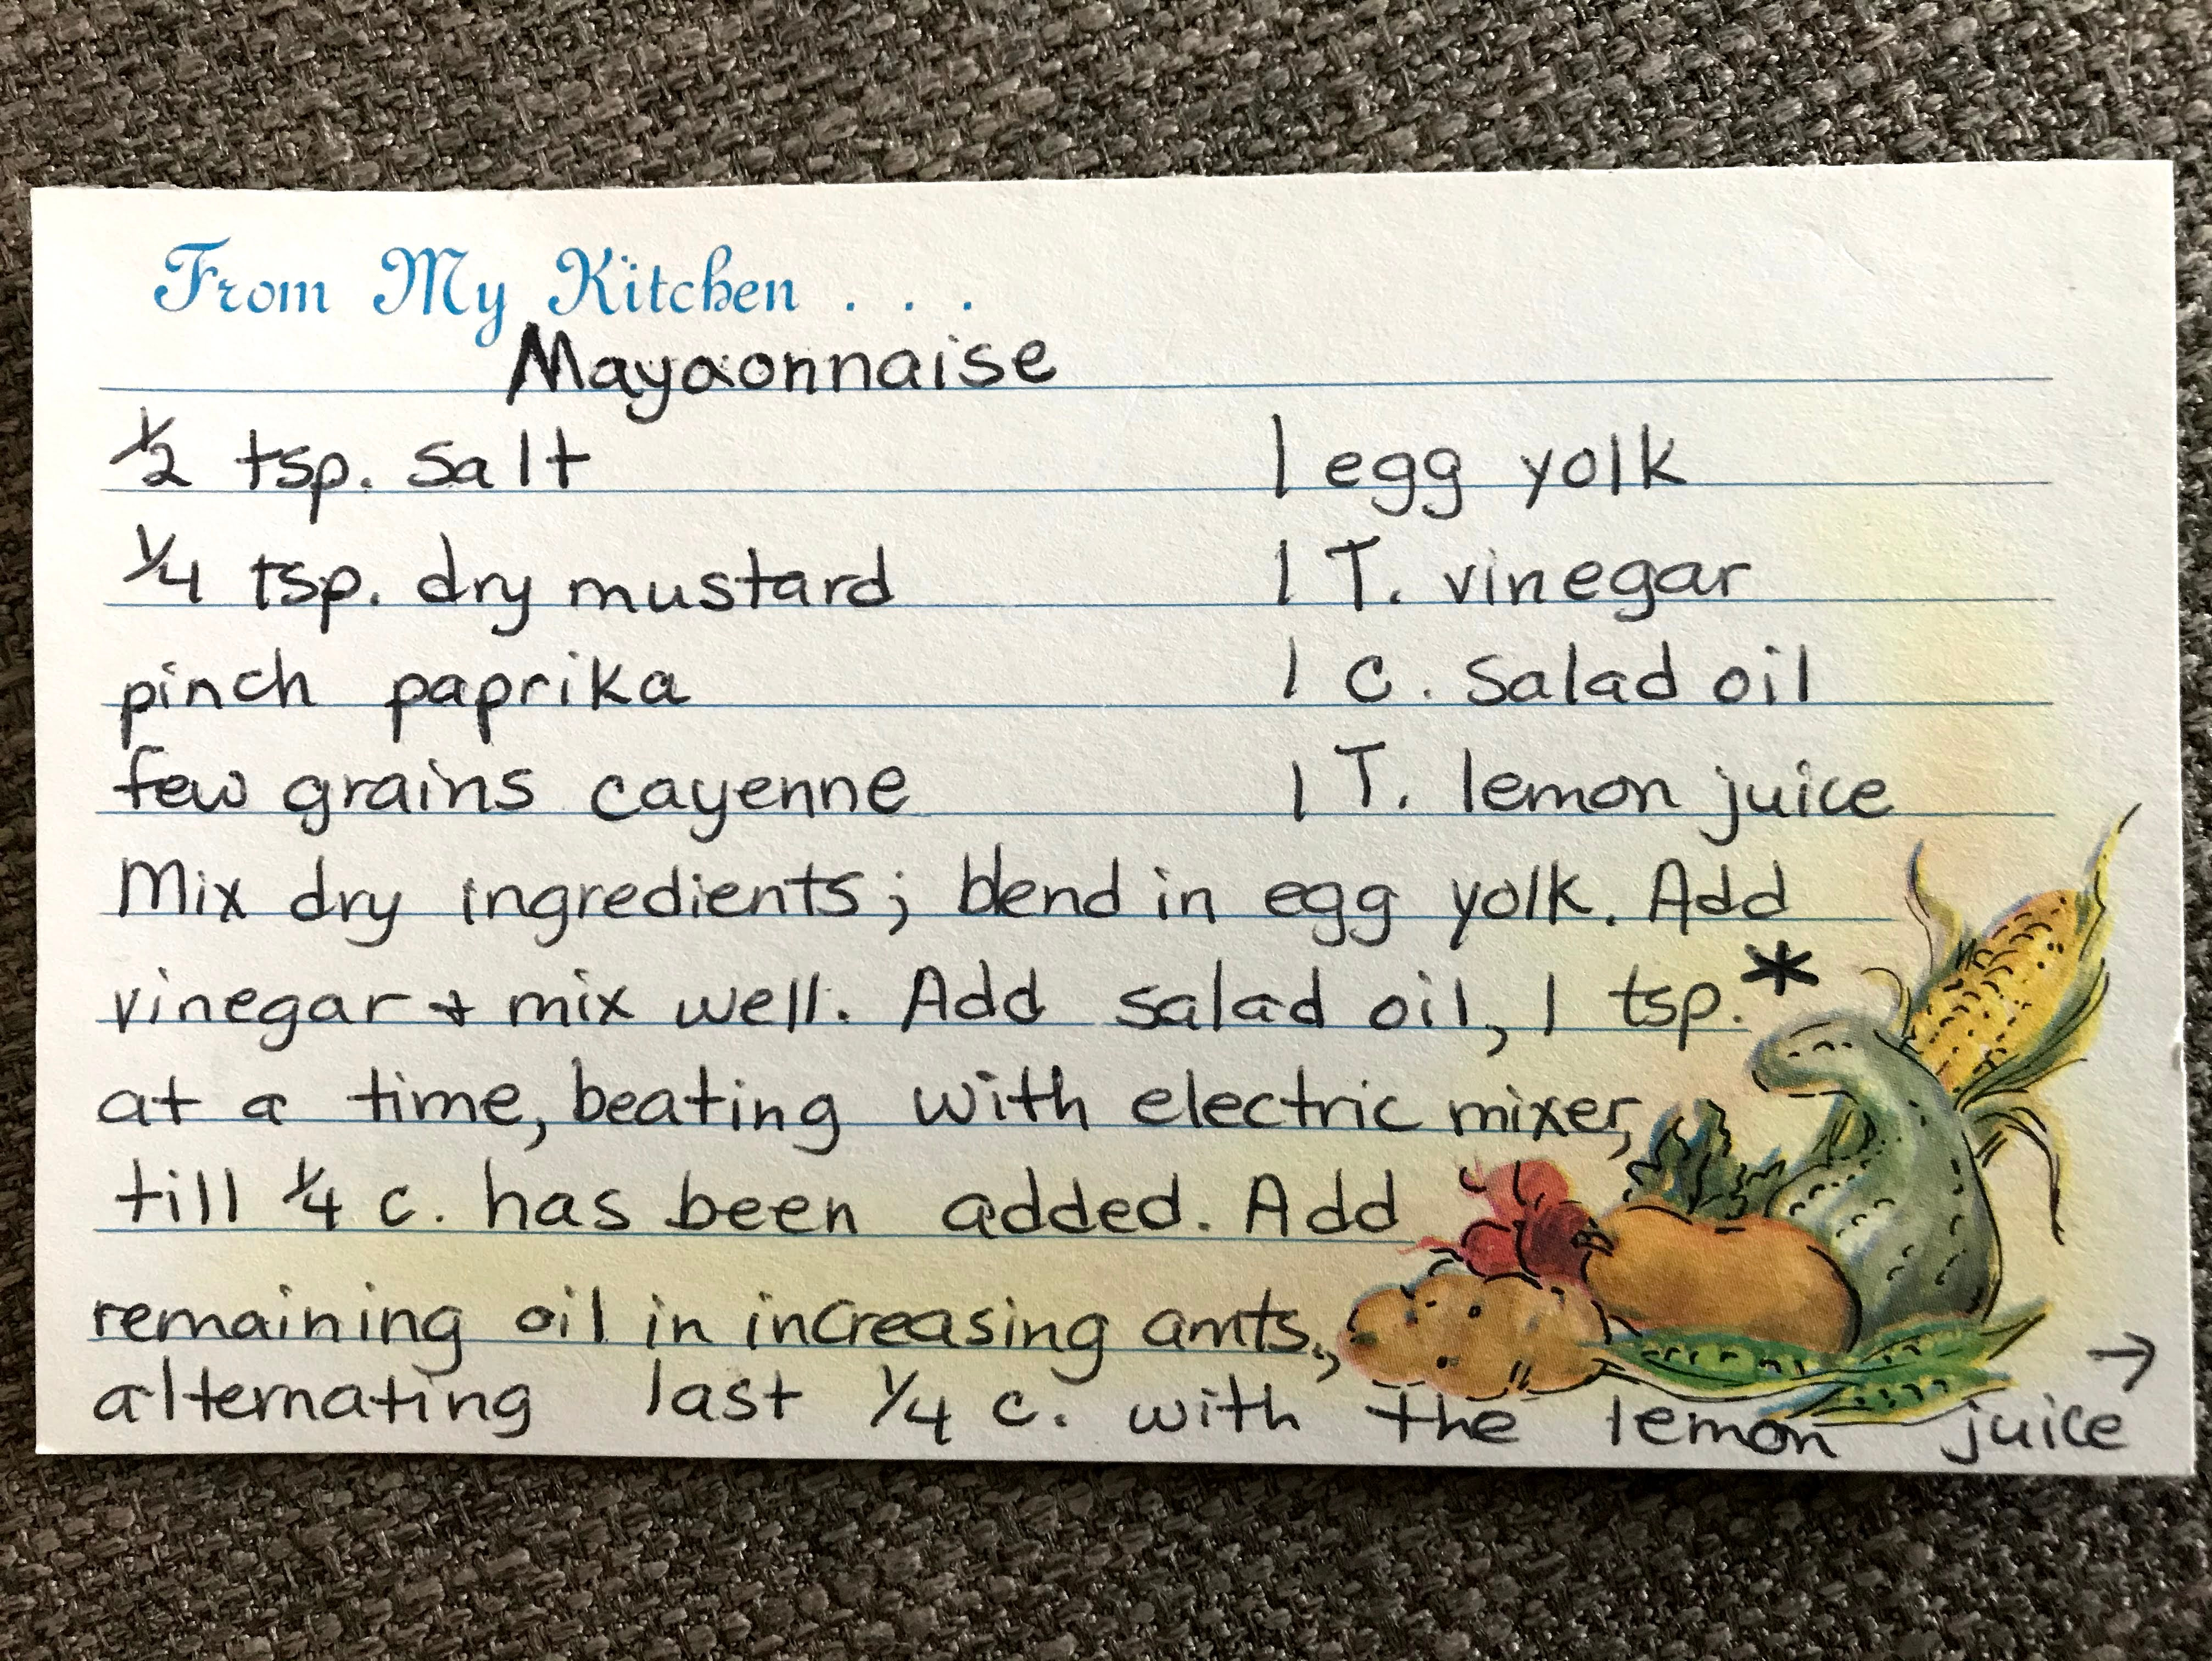 From My Kitchen . . .
Mayaonnaise
1/2 tsp. salt 1 egg yolk
1/4 tsp. dry mustard 1 T. vinegar
pinch paprika 1 c. salad oil
few grains cayenne 1 T. lemon juice
Mix dry ingredients; blend in egg yolk. Add
vinegar + mix well. Add salad oil, 1 tsp.*
at a time, beating with electric mixer,
till 1/4 c. has been added. Add
remaining oil in increasing amts.,
alternating last 1/4 c. with the lemon juice →